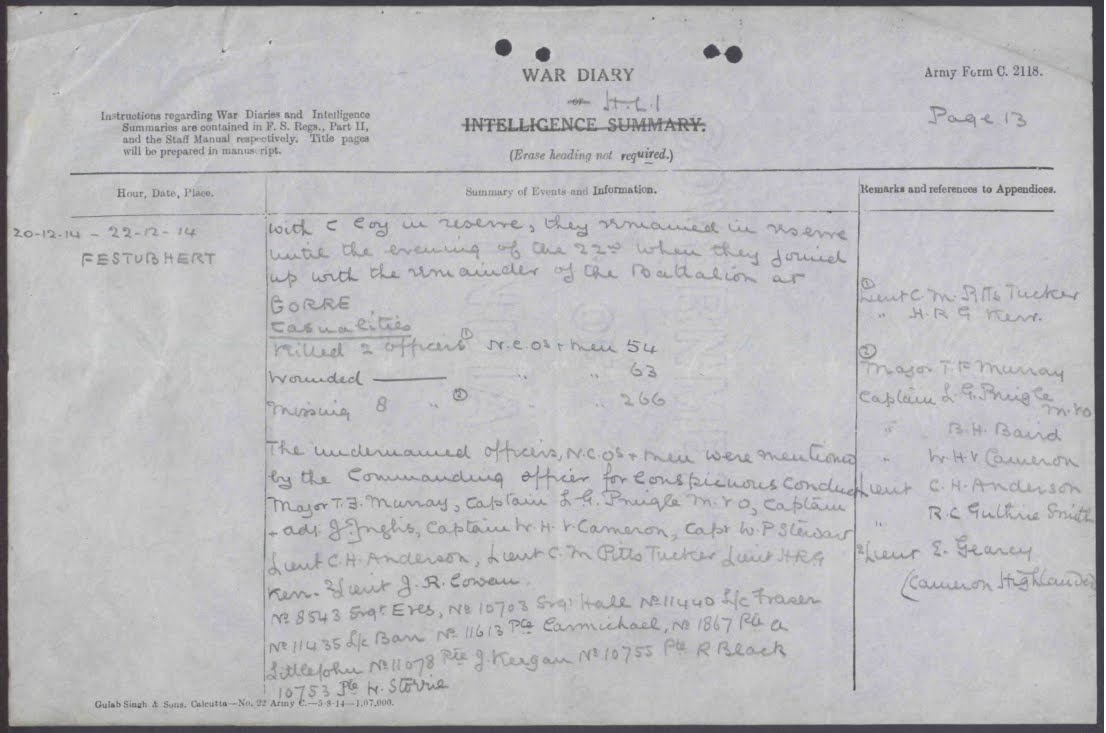 WAR DIARY
Army Form C. 2118.
or H.L.I
INTELLIGENCE SUMMARY.
(Erase heading not required.)
Page 13
Instructions regarding War Diaries and Intelligence
Summaries are contained in F. S. Regs., Part II,
and the Staff Manual respectively. Title pages
will be prepared in manuscript.
Hour, Date, Place.
Summary of Events and Information.
Remarks and references to Appendices.
20-12-14 - 22-12-14
FESTUBHERT
with C Coy in reserve, they remained in reserve
until the evening of the 22nd when they joined
up with the remainder of the Battalion at
GORRE
Casualities
Killed 2 officers ① N.C.Os + men 54
Wounded —— " " 63
Missing 8 " ② " " 266
The undernamed officers, N.C.Os + men were mentioned
by the Commanding officer for Conspicuous Conduct
Major T.F. Murray, Captain L.G. Pringle M.V.O, Captain
+ adjt J. Inglis, Captain W.H.V. Cameron, Capt W.P Stewart
Lieut C.H. Anderson, Lieut C.M Pitts Tucker Lieut H.R.G
Kerr. 2/Lieut J.R. Cowan.
No 8543 Sergt Eves, No 10703 Sergt Hall No 11440 L/c Fraser
No 11435 L/c Barr No 11613 Pte Carmichael, No 1867 Pte A
Littlejohn No 11078 Pte J. Keegan No 10755 Pte R Black
10753 Pte H. Storrie
① Lieut C.M. Pitts Tucker
" H.R.G Kerr.
②
Major T.F Murray
Captain L.G. Pringle
M.V.O
" B.H. Baird
" W.H.V Cameron
Lieut C.H. Anderson
" R.C Guthrie Smith
2/Lieut E. Gearey
(Cameron Highlanders
Gulab Singh & Sons, Calcutta—No. 22 Army C.—5-8-14—1,07,000.